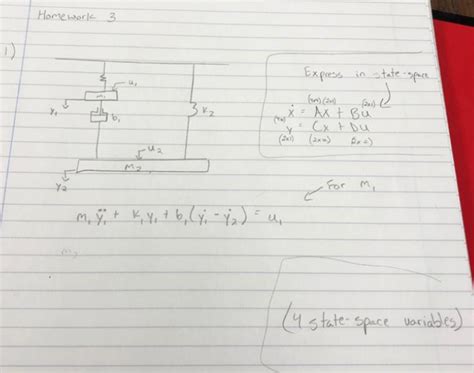 Homework 3
1)
u₁
m₁
y₁
b₁
k₂
u₂
m₂
y₂
Express in state-space
ẋ = Ax + Bu
y = Cx + Du
(2x1) (2x4)
For m₁
m₁ÿ₁ + k₁y₁ + b₁(ẏ₁ - ẏ₂) = u₁
m₂
(4 state-space variables)